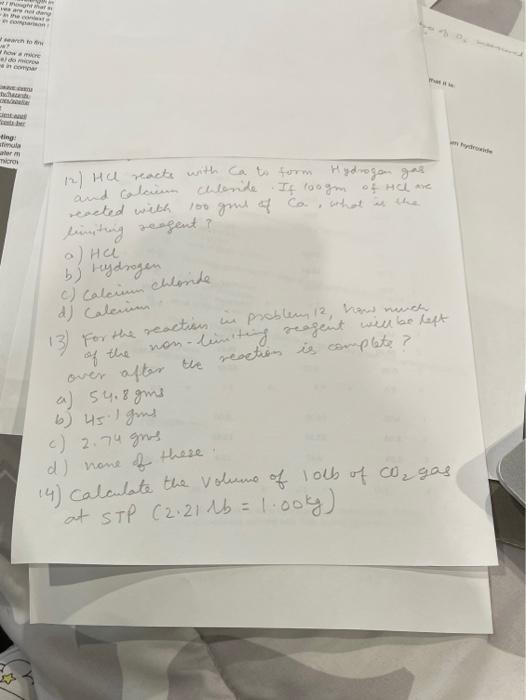 12) HCl reacts with Ca to form Hydrogen gas
and Calcium chloride. If 100gm of HCl are
reacted with 100 gms of Ca, what is the
limiting reagent?
a) HCl
b) Hydrogen
c) Calcium chloride
d) Calcium
13) For the reaction in problem 12, how much
of the non-limiting reagent will be left
over after the reaction is complete?
a) 54.8 gms
b) 45.1 gms
c) 2.74 gms
d) none of these.
14) Calculate the volume of 10lb of CO2 gas
at STP (2.21 lb = 1.00kg)
that it is
hydroxide